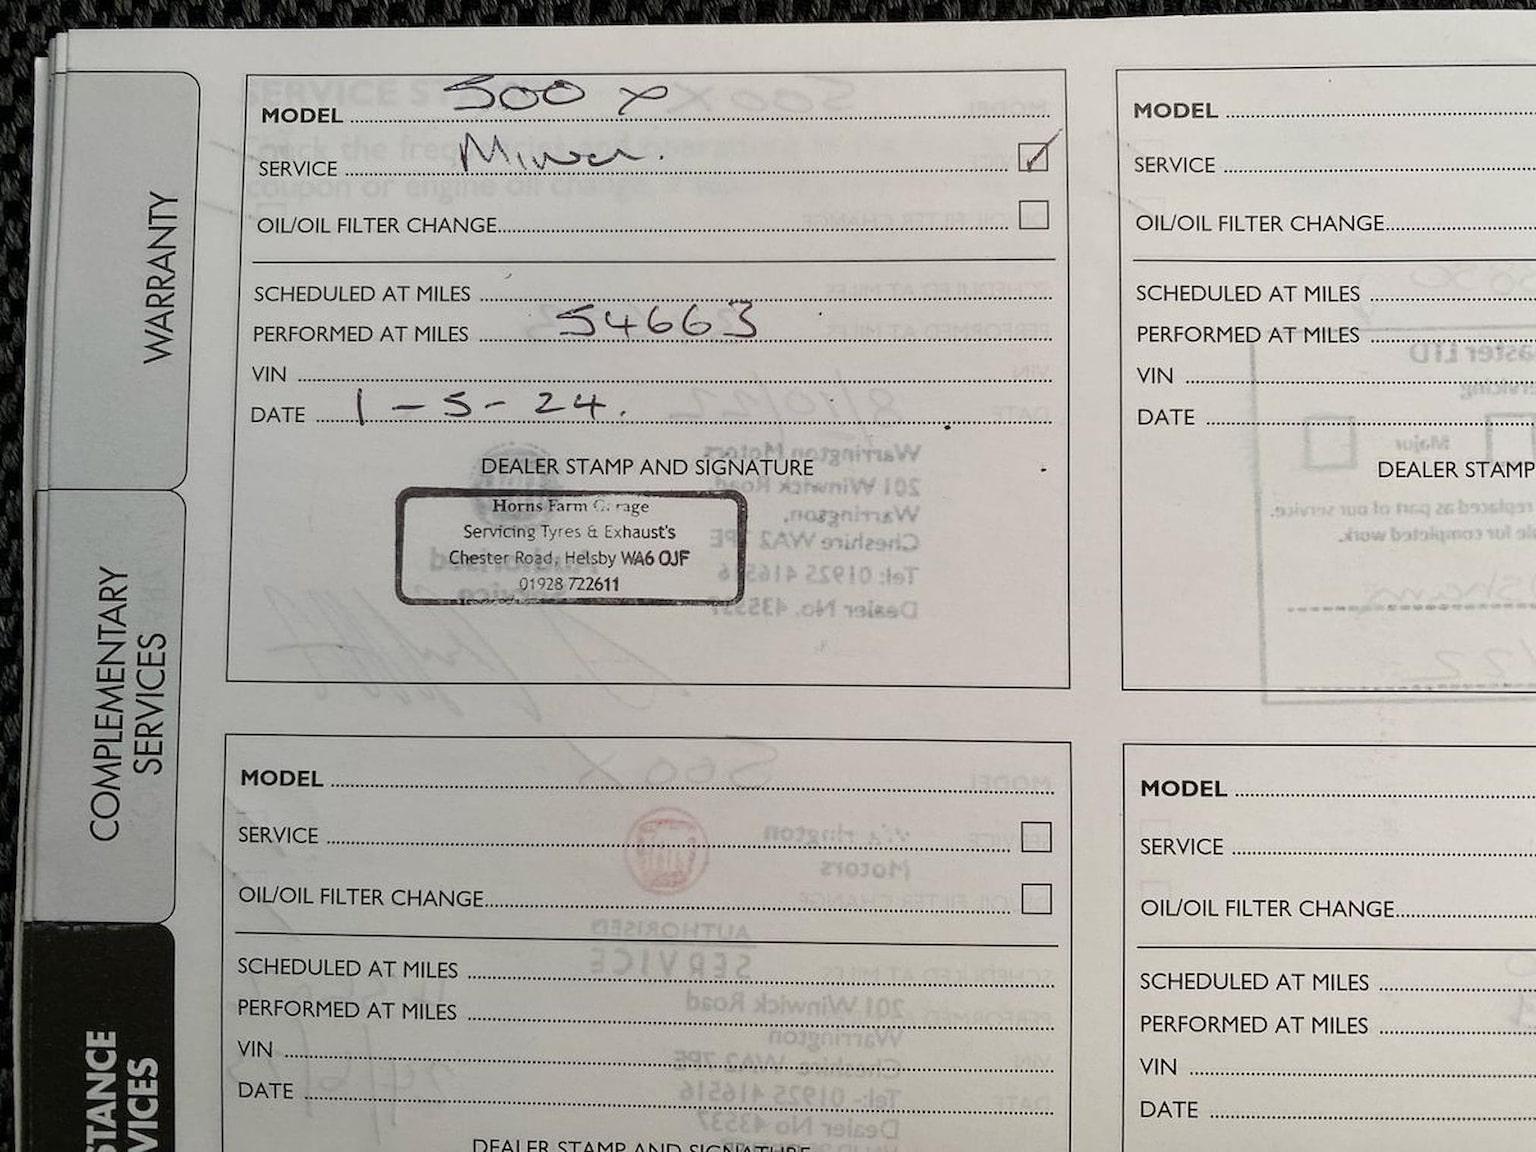 WARRANTY
COMPLEMENTARY
SERVICES
STANCE
VICES
MODEL 500 X
SERVICE Minor.
OIL/OIL FILTER CHANGE
SCHEDULED AT MILES
PERFORMED AT MILES 54663
VIN
DATE 1-5-24.
DEALER STAMP AND SIGNATURE
Horns Farm Garage
Servicing Tyres & Exhaust's
Chester Road, Helsby WA6 0JF
01928 722611
MODEL
SERVICE
OIL/OIL FILTER CHANGE
SCHEDULED AT MILES
PERFORMED AT MILES
VIN
DATE
DEALER STAMP
MODEL
SERVICE
OIL/OIL FILTER CHANGE
SCHEDULED AT MILES
PERFORMED AT MILES
VIN
DATE
DEALER STAMP AND SIGNATURE
MODEL
SERVICE
OIL/OIL FILTER CHANGE
SCHEDULED AT MILES
PERFORMED AT MILES
VIN
DATE